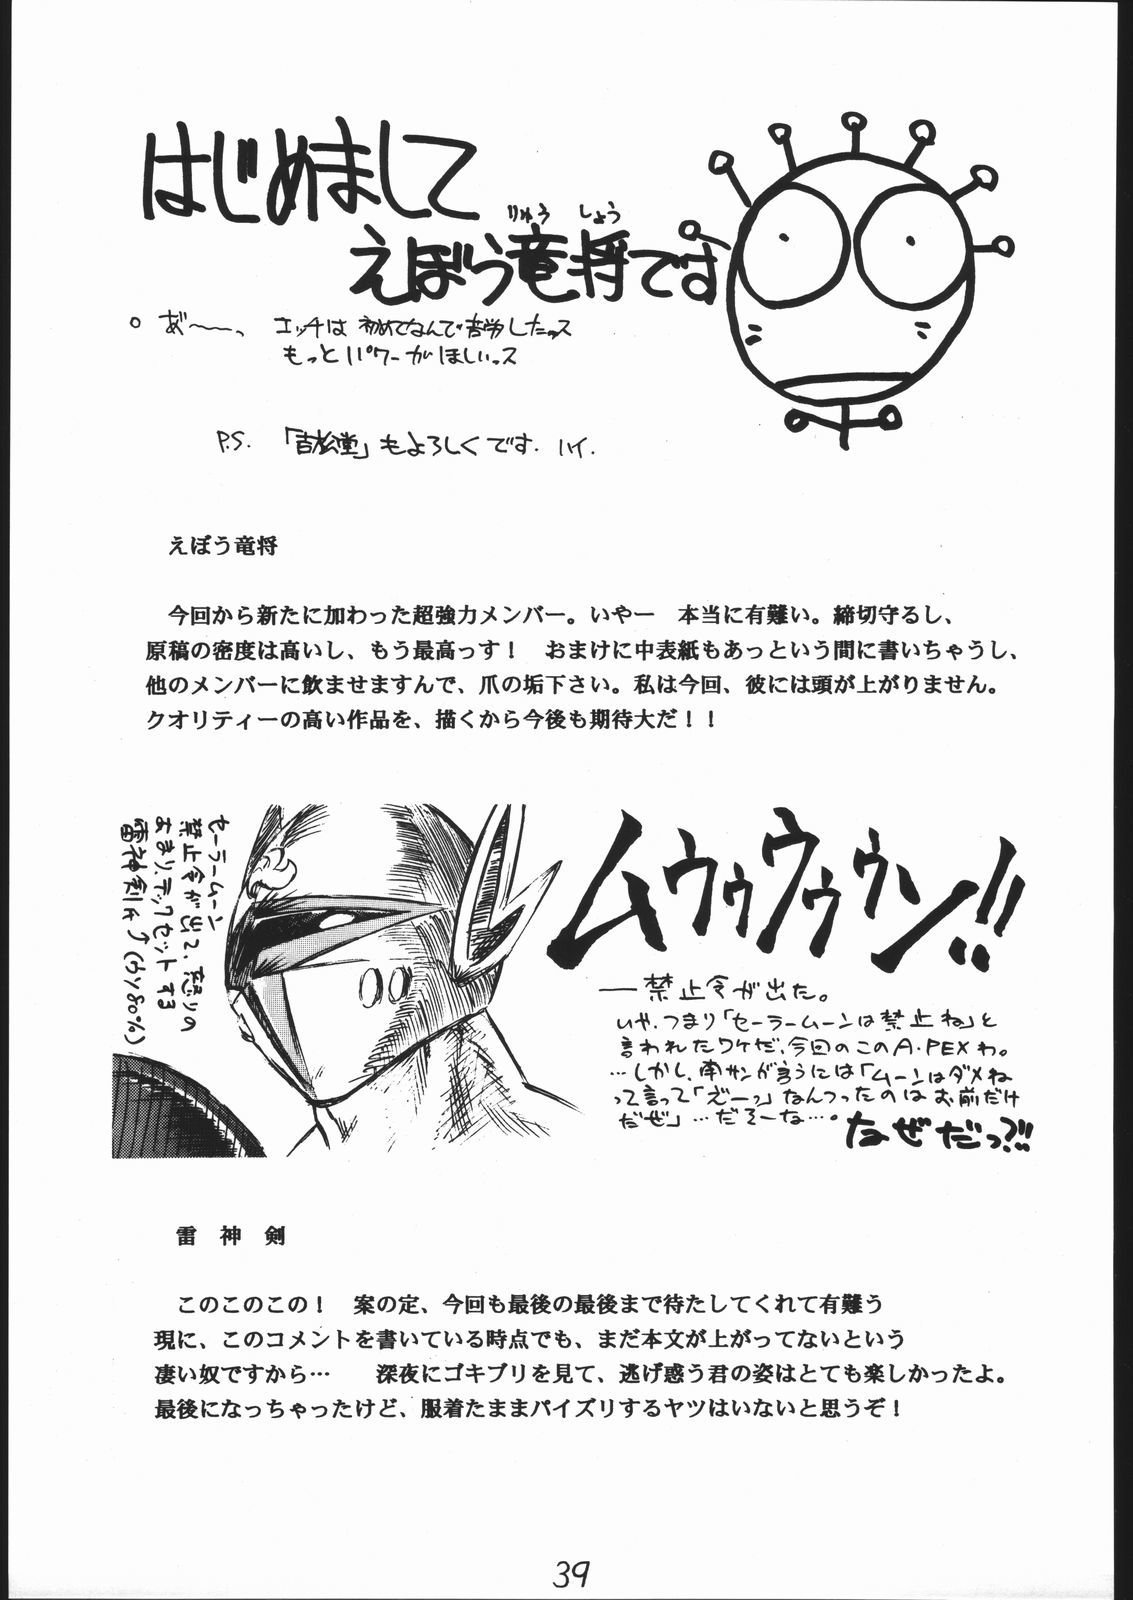 はじめまして
りゅう しょう
えぼう竜将です
。 あ゛〜〜っ エッチは 初めてなんで 苦労したっス
もっとパワーがほしいっス
P.S. 「吉松堂」もよろしくです. ハイ.
えぼう竜将
今回から新たに加わった超強力メンバー。いやー 本当に有難い。締切守るし、
原稿の密度は高いし、もう最高っす! おまけに中表紙もあっという間に書いちゃうし、
他のメンバーに飲ませますんで、爪の垢下さい。私は今回、彼には頭が上がりません。
クオリティーの高い作品を、描くから今後も期待大だ!!
セーラームーン
禁止令が出て、怒りの
あまり、テックセットする
雷神剣氏⤴(ウソ80%)
ムウゥウゥウン!!
―禁止令が出た。
いや、つまり「セーラームーンは禁止ね」と
言われたワケだ、今回のこのA・PEXわ。
…しかし、南サンが言うには「ムーンはダメね
って言って「ズーッ」なんつったのはお前だけ
だぜ」…だそーな…。なぜだっ?!!
雷 神 剣
このこのこの! 案の定、今回も最後の最後まで待たしてくれて有難う
現に、このコメントを書いている時点でも、まだ本文が上がってないという
凄い奴ですから… 深夜にゴキブリを見て、逃げ惑う君の姿はとても楽しかったよ。
最後になっちゃったけど、服着たままパイズリするヤツはいないと思うぞ!
39